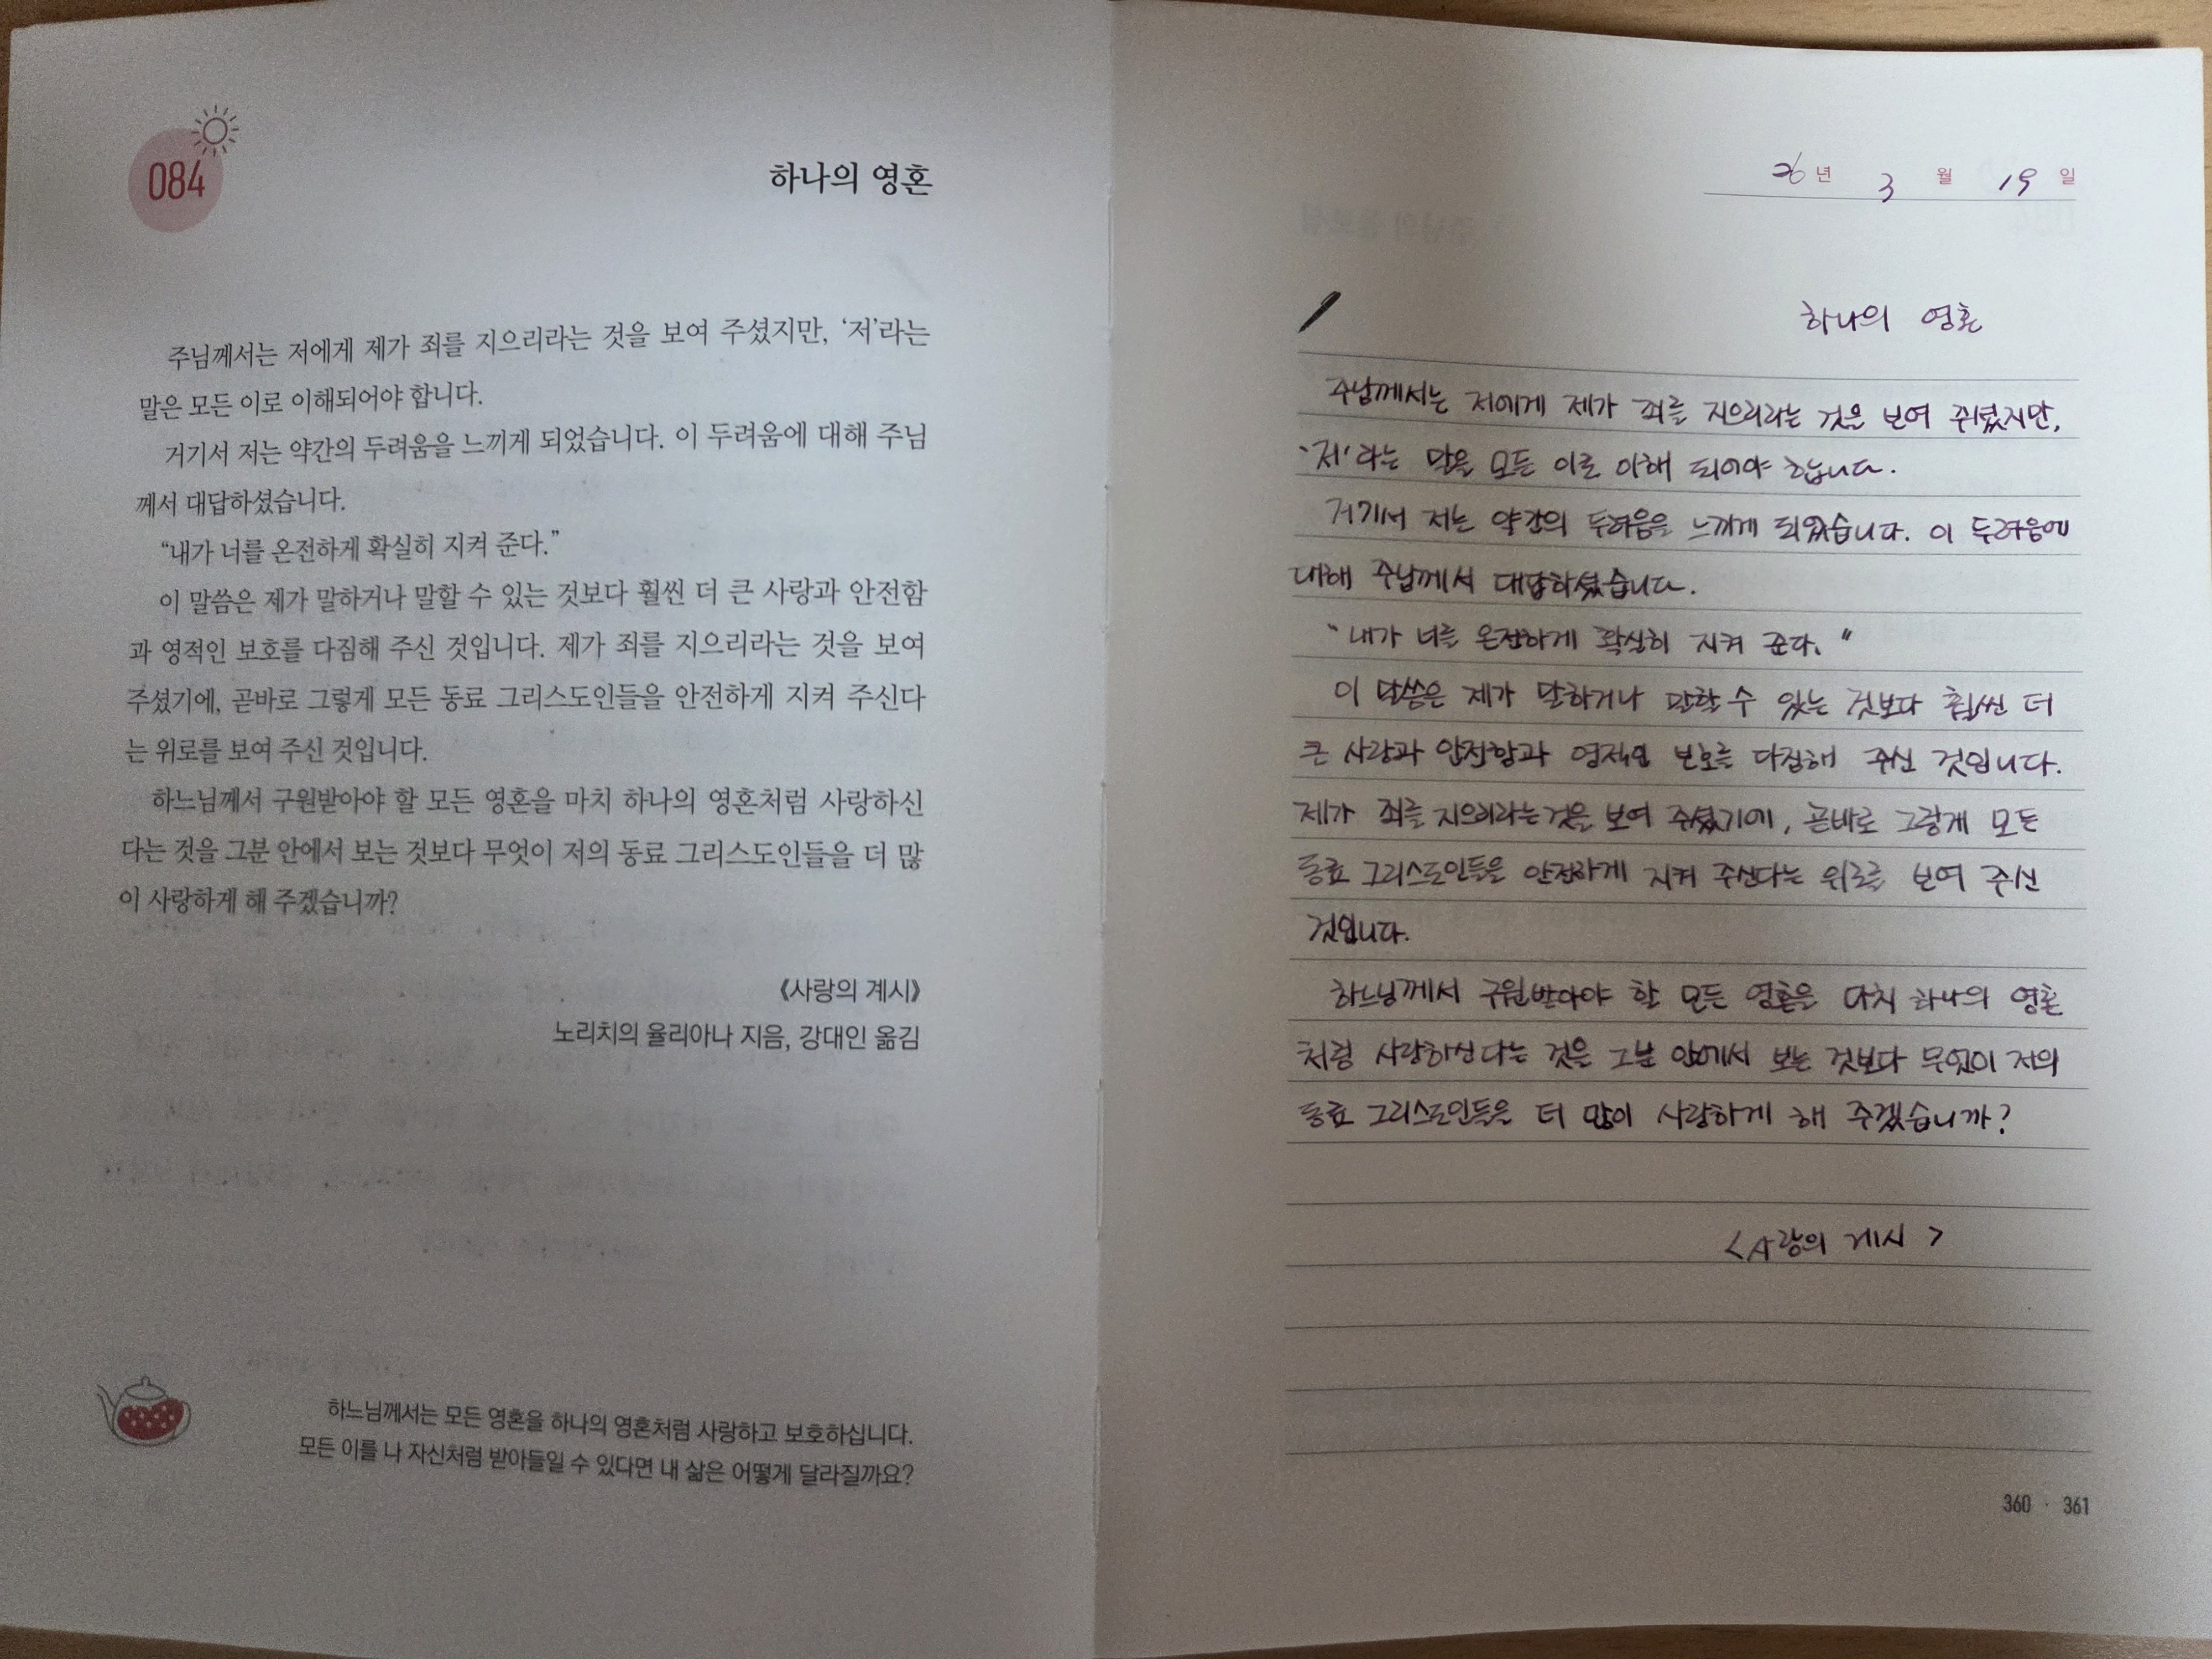 084
하나의 영혼
주님께서는 저에게 제가 죄를 지으리라는 것을 보여 주셨지만, ‘저’라는
말은 모든 이로 이해되어야 합니다.
거기서 저는 약간의 두려움을 느끼게 되었습니다. 이 두려움에 대해 주님
께서 대답하셨습니다.
“내가 너를 온전하게 확실히 지켜 준다.”
이 말씀은 제가 말하거나 말할 수 있는 것보다 훨씬 더 큰 사랑과 안전함
과 영적인 보호를 다짐해 주신 것입니다. 제가 죄를 지으리라는 것을 보여
주셨기에, 곧바로 그렇게 모든 동료 그리스도인들을 안전하게 지켜 주신다
는 위로를 보여 주신 것입니다.
하느님께서 구원받아야 할 모든 영혼을 마치 하나의 영혼처럼 사랑하신
다는 것을 그분 안에서 보는 것보다 무엇이 저의 동료 그리스도인들을 더 많
이 사랑하게 해 주겠습니까?
《사랑의 계시》
노리치의 율리아나 지음, 강대인 옮김
하느님께서는 모든 영혼을 하나의 영혼처럼 사랑하고 보호하십니다.
모든 이를 나 자신처럼 받아들일 수 있다면 내 삶은 어떻게 달라질까요?
26년 3월 19일
하나의 영혼
주님께서는 저에게 제가 죄를 지으리라는 것을 보여 주셨지만,
'저'라는 말을 모든 이로 이해 되어야 합니다.
거기서 저는 약간의 두려움을 느끼게 되었습니다. 이 두려움에
대해 주님께서 대답하셨습니다.
"내가 너를 온전하게 확실히 지켜 준다."
이 말씀은 제가 말하거나 말할 수 있는 것보다 훨씬 더
큰 사랑과 안전함과 영적인 보호를 다짐해 주신 것입니다.
제가 죄를 지으리라는 것을 보여 주셨기에, 곧바로 그렇게 모든
동료 그리스도인들을 안전하게 지켜 주신다는 위로를 보여 주신
것입니다.
하느님께서 구원받아야 할 모든 영혼을 마치 하나의 영혼
처럼 사랑하신다는 것을 그분 안에서 보는 것보다 무엇이 저의
동료 그리스도인들을 더 많이 사랑하게 해 주겠습니까?
<사랑의 계시>
360 · 361